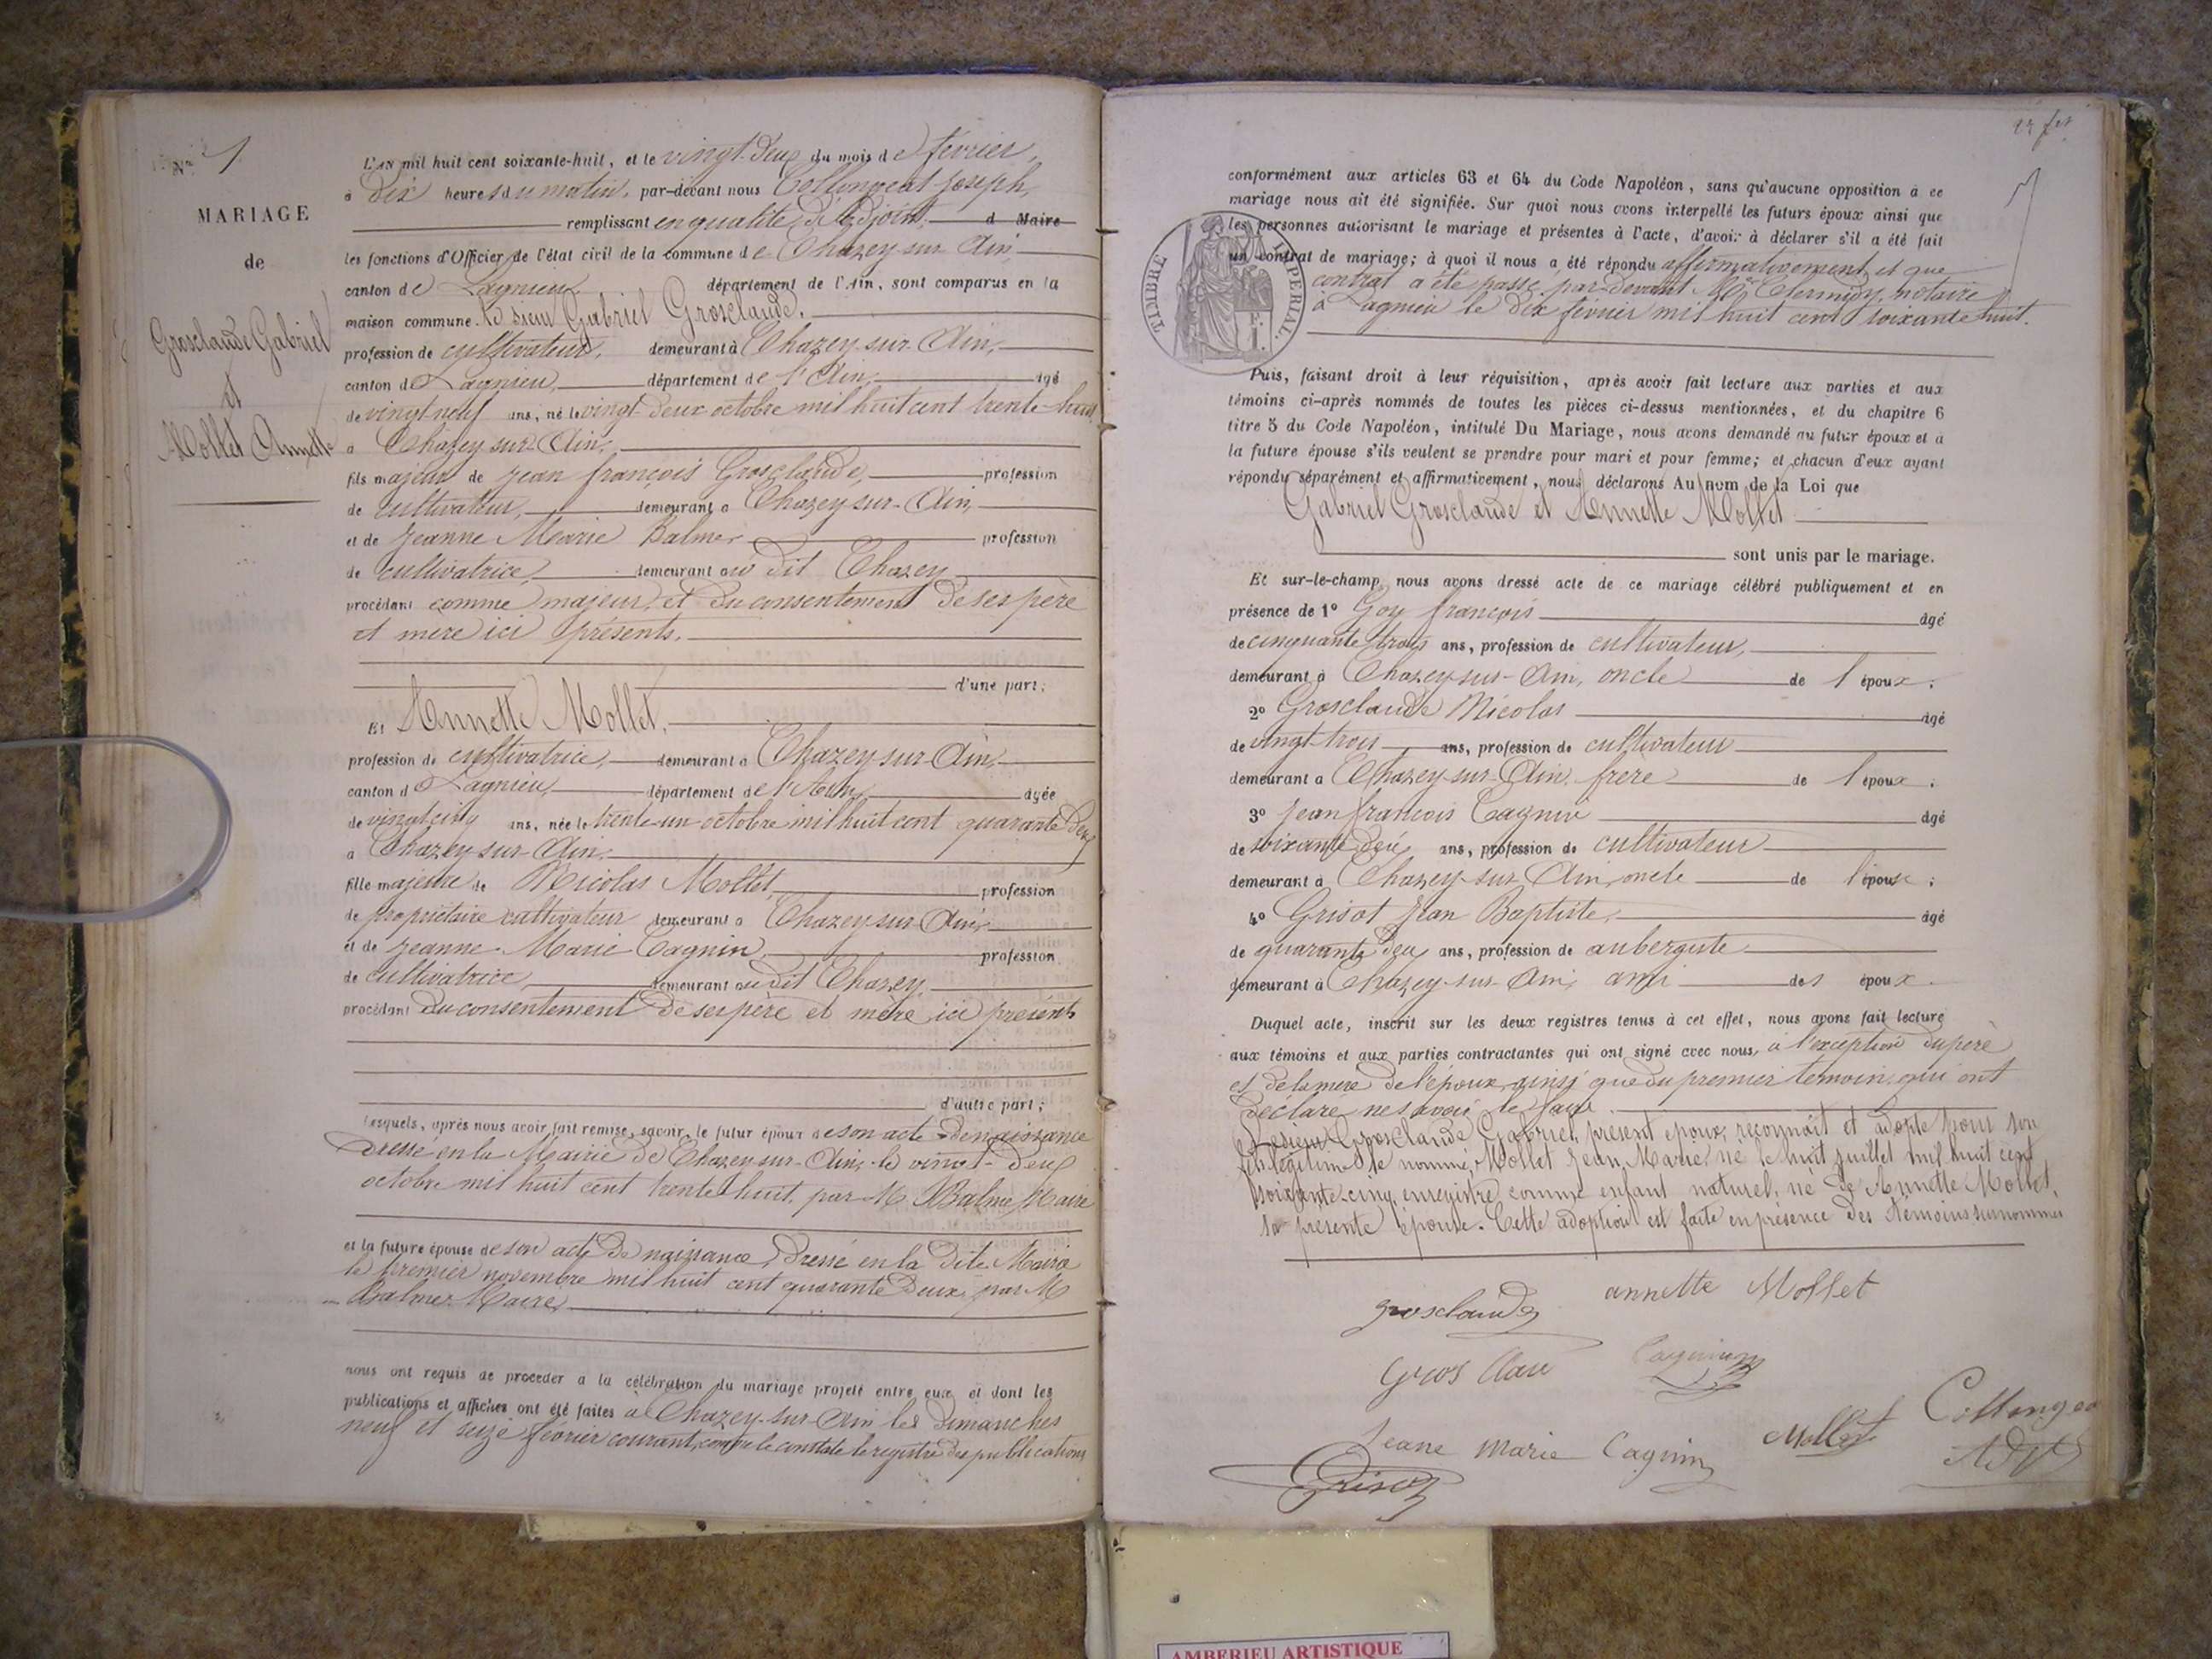 N° 7
MARIAGE
de
Grosclaude Gabriel
et
Mollet Annette
L'AN mil huit cent soixante-huit, et le vingt-deux du mois de février,
à dix heures du matin, par-devant nous Collingeat Joseph,
remplissant en qualité d'Adjoint, d Maire
les fonctions d'Officier de l'état civil de la commune de Chazey-sur-Ain,
canton de Lagnieu département de l'Ain, sont comparus en la
maison commune le sieur Gabriel Grosclaude,
profession de cultivateur, demeurant à Chazey-sur-Ain,
canton de Lagnieu, département de l'Ain, âgé
de vingt neuf ans, né le vingt-deux octobre mil huit cent trente-huit
à Chazey-sur-Ain,
fils majeur de Jean françois Grosclaude, profession
de cultivateur, demeurant à Chazey-sur-Ain,
et de Jeanne Marie Balmer profession
de cultivatrice, demeurant au dit Chazey
procédant comme majeur, et du consentement de ses père
et mère ici présents,
d'une part;
Et Annette Mollet,
profession de cultivatrice, demeurant à Chazey-sur-Ain,
canton d Lagnieu, département de l'Ain, âgée
de vingt cinq ans, née le trente-un octobre mil huit cent quarante deux
à Chazey-sur-Ain,
fille majeure de Nicolas Mollet, profession
de propriétaire cultivateur demeurant à Chazey-sur-Ain,
et de Jeanne Marie Cagnin, profession
de cultivatrice, demeurant au dit Chazey
procédant du consentement de ses père et mère ici présents
d'autre part;
Lesquels, après nous avoir fait remise, savoir, le futur époux de son acte de naissance
dressé en la Mairie de Chazey-sur-Ain, le vingt-deux
octobre mil huit cent trente-huit, par M. Balme Maire
et la future épouse de son acte de naissance, dressé en la dite Mairie
le premier novembre mil huit cent quarante deux, par M
Balme Maire,
nous ont requis de procéder à la célébration du mariage projeté entre eux et dont les
publications et affiches ont été faites à Chazey-sur-Ain les dimanches
neuf et seize février courant, comme le constate le registre des publications
conformément aux articles 63 et 64 du Code Napoléon, sans qu'aucune opposition à ce
mariage nous ait été signifiée. Sur quoi nous avons interpellé les futurs époux ainsi que
les personnes autorisant le mariage et présentes à l'acte, d'avoir à déclarer s'il a été fait
un contrat de mariage; à quoi il nous a été répondu affirmativement et que
contrat a été passé par-devant Me notaire
à Lagnieu le dix février mil huit cent soixante huit.
TIMBRE IMPERIAL.
Puis, faisant droit à leur réquisition, après avoir fait lecture aux parties et aux
témoins ci-après nommés de toutes les pièces ci-dessus mentionnées, et du chapitre 6
titre 5 du Code Napoléon, intitulé Du Mariage, nous avons demandé au futur époux et à
la future épouse s'ils veulent se prendre pour mari et pour femme; et chacun d'eux ayant
répondu séparément et affirmativement, nous déclarons Au nom de la Loi que
Gabriel Grosclaude et Annette Mollet
sont unis par le mariage.
Et sur-le-champ nous avons dressé acte de ce mariage célébré publiquement et en
présence de 1° Goy françois âgé
de cinquante trois ans, profession de cultivateur,
demeurant à Chazey-sur-Ain, oncle de l'époux;
2° Grosclaude Nicolas âgé
de vingt-trois ans, profession de cultivateur
demeurant à Chazey-sur-Ain frère de l'époux;
3° Jean françois Cagnin âgé
de soixante deux ans, profession de cultivateur
demeurant à Chazey-sur-Ain, oncle de l'épouse;
4° Grisot Jean Baptiste, âgé
de quarante deux ans, profession de aubergiste
demeurant à Chazey-sur-Ain, ami des époux.
Duquel acte, inscrit sur les deux registres tenus à cet effet, nous avons fait lecture
aux témoins et aux parties contractantes qui ont signé avec nous, à l'exception du père
et de la mère de l'époux, ainsi que du premier témoin, qui ont
déclaré ne savoir le faire.
Le sieur Grosclaude Gabriel, présent époux, reconnait et adopte pour son
fils légitime le nommé Mollet Jean Marie, né le huit juillet mil huit cent
soixante-cinq, enregistré comme enfant naturel, né de Annette Mollet,
sa présente épouse. Cette adoption est faite en présence des témoins surnommés
grosclaude annette Mollet
Gros Clau Cagnin
Jeane Marie Cagnin Mollet Collingeat
Grisot Adt
AMBERIEU ARTISTIQUE